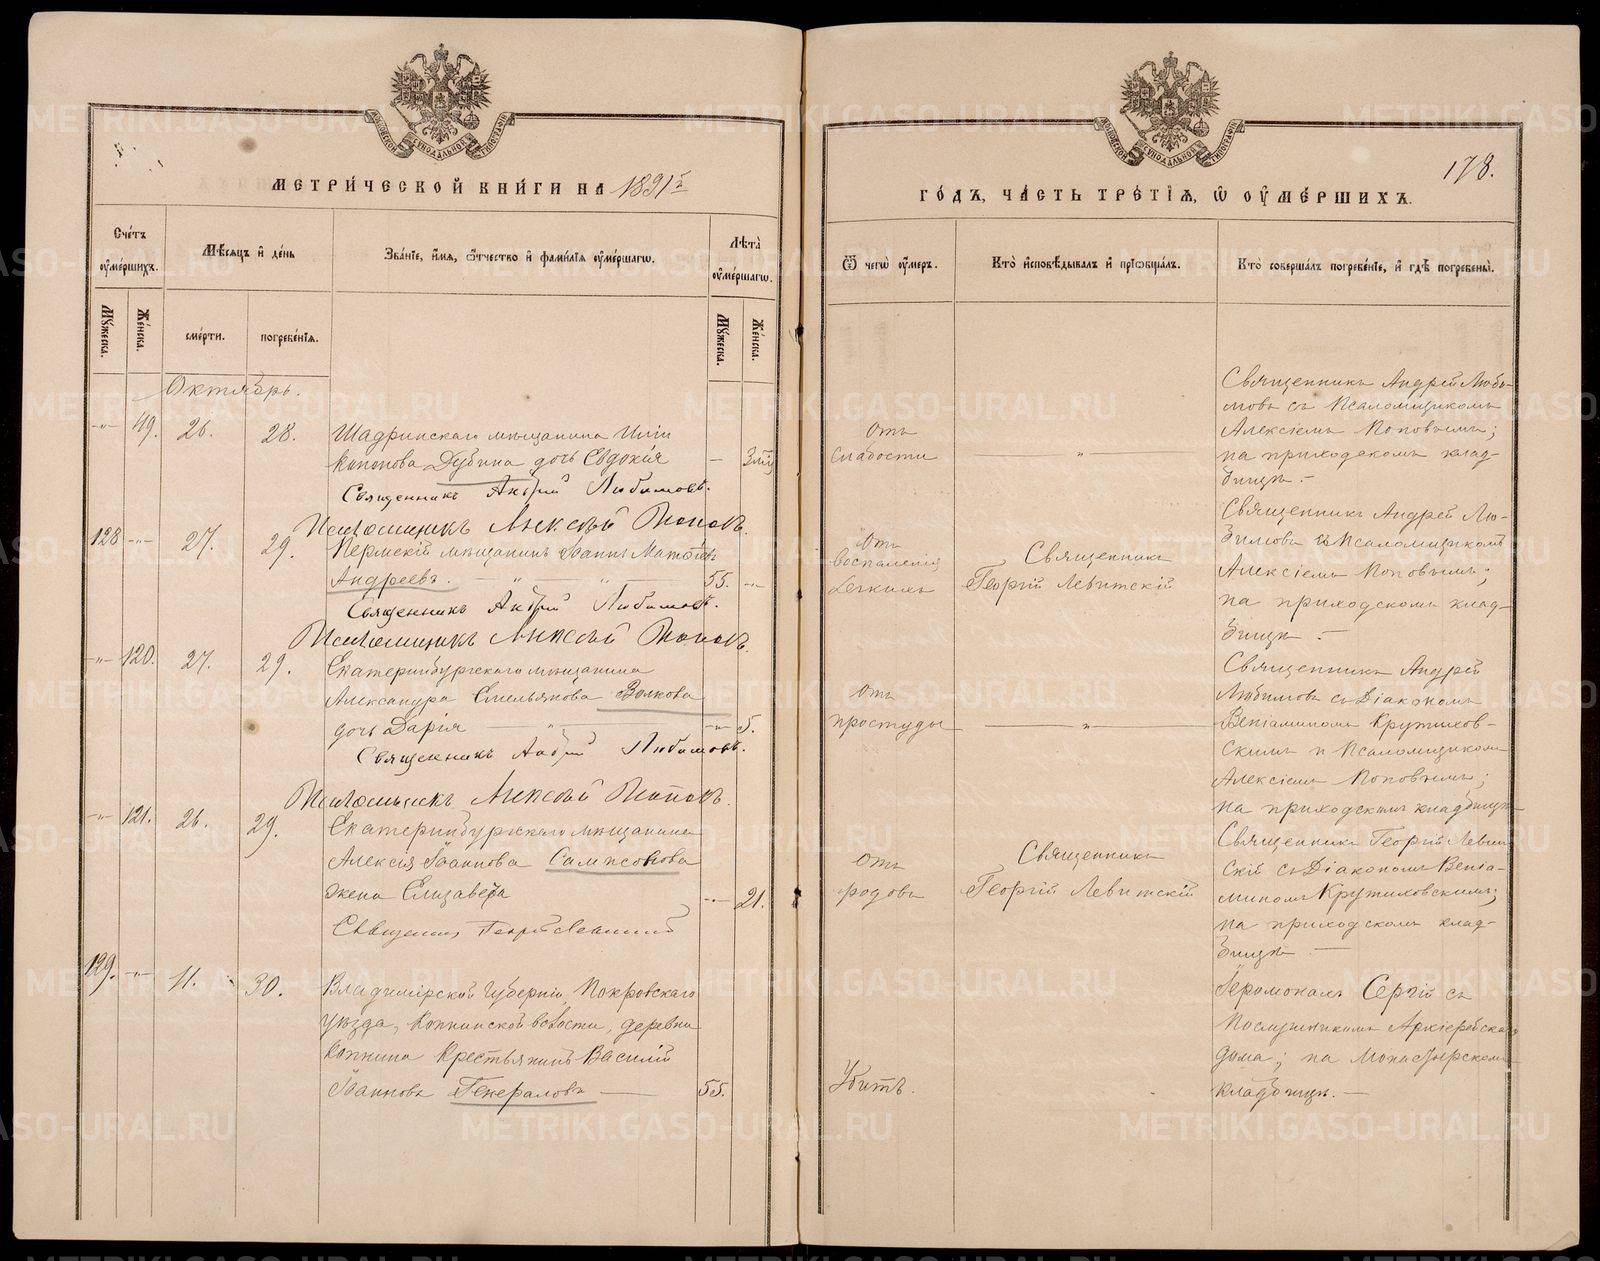 МОСКОВСКОЙ СѴНОДАЛЬНОЙ ТИПОГРАФІИ
МЕТРИ́ЧЕСКОЙ КНИ́ГИ НА 1891 г.
Сче́тъ ᲂу҆ме́ршихъ.
Мѣ́сяцъ и҆ де́нь
Зва́нїе, и҆́мя, ѻ҆́тчество и҆ фами́лїя ᲂу҆ме́ршагѡ.
Лѣ́та ᲂу҆ме́ршагѡ.
Мꙋ́жеска.
Же́нска.
сме́рти.
погребе́нїя.
Мꙋ́жеска.
Же́нска.
Октябрь.
-"- 49. 26. 28. Шадринскаго мѣщанина Иліи
Кононова Дубина дочь Евдокія
Священникъ Андрей Любимовъ.
Псаломщикъ Алексѣй Поповъ.
128 -"- 27. 29. Пермскій мѣщанинъ Іоаннъ
Андреевъ. — " — " — 55. -"-
Священникъ Андрей Любимовъ.
Псаломщикъ Алексѣй Поповъ.
-"- 120. 27. 29. Екатеринбургскаго мѣщанина
Александра Емельянова Волкова
дочь Дарія -"- 5.
Священникъ Андрей Любимовъ.
Псаломщикъ Алексѣй Поповъ.
-"- 121. 26. 29. Екатеринбургскаго мѣщанина
Алексія Іоаннова Сампсонова
жена Елизавета -"- 21.
Священникъ Георгій Левитскій
129. -"- 11. 30. Владимірской Губерніи, Покровскаго
уѣзда, Копнинской волости, деревни
Копнина Крестьянинъ Василій
Іоанновъ Генераловъ — 55.
МОСКОВСКОЙ СѴНОДАЛЬНОЙ ТИПОГРАФІИ
178.
ГО́ДЪ, ЧА́СТЬ ТРЕ́ТЇЯ, Ѡ҆ ОУ҆МЕ́РШИХЪ.
Ѿ чегѡ̀ ᲂу҆́меръ.
Кто̀ и҆сповѣ́дывалъ и҆ прїѡбща́лъ.
Кто̀ соверша́лъ погребе́нїе, и҆ гдѣ̀ погребены̀.
Отъ
слабости
— " —
Священникъ Андрей Люби-
мовъ съ Псаломщикомъ
Алексіемъ Поповымъ;
на приходскомъ клад-
бищѣ. —
Отъ
воспаленія
Легкихъ
Священникъ
Георгій Левитскій
Священникъ Андрей Лю-
бимовъ съ Псаломщикомъ
Алексіемъ Поповымъ;
на приходскомъ клад-
бищѣ. —
Отъ
простуды
— " —
Священникъ Андрей
Любимовъ съ Діакономъ
Веніаминомъ Крутихов-
скимъ и Псаломщикомъ
Алексіемъ Поповымъ;
на приходскомъ кладбищѣ
Отъ
родовъ
Священникъ
Георгій Левитскій
Священникъ Георгій Левит-
скій съ Діакономъ Веніа-
миномъ Крутиховскимъ;
на приходскомъ клад-
бищѣ —
Убитъ.
Іеромонахъ Сергій съ
Послушникомъ Архіерейскаго
дома; на Монастырскомъ
кладбищѣ. —
METRIKI.GASO-URAL.RU